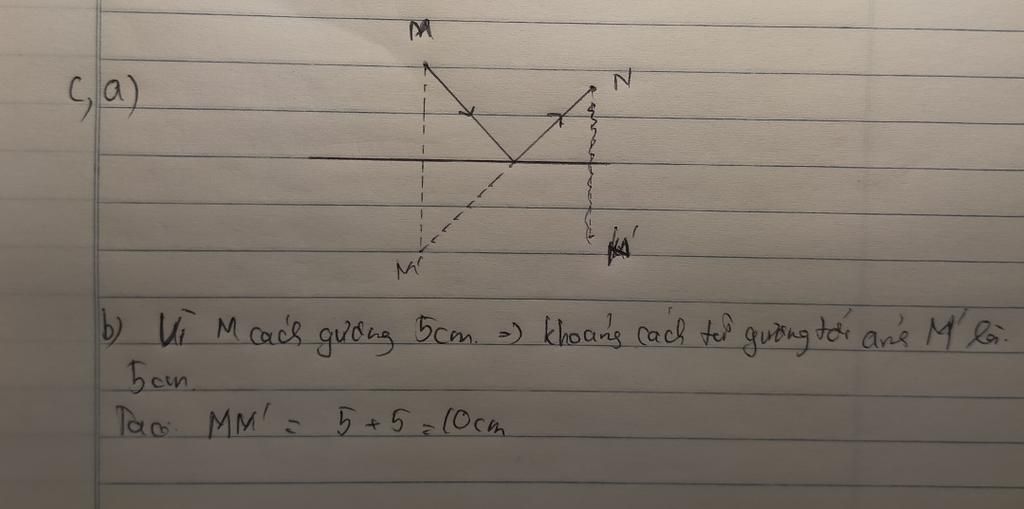 M
c, a)
N
M'
M'
b) Vì M cách gương 5cm. => khoảng cách từ gương tới ảnh M' là.
5cm.
Ta có. MM' = 5 + 5 = 10cm